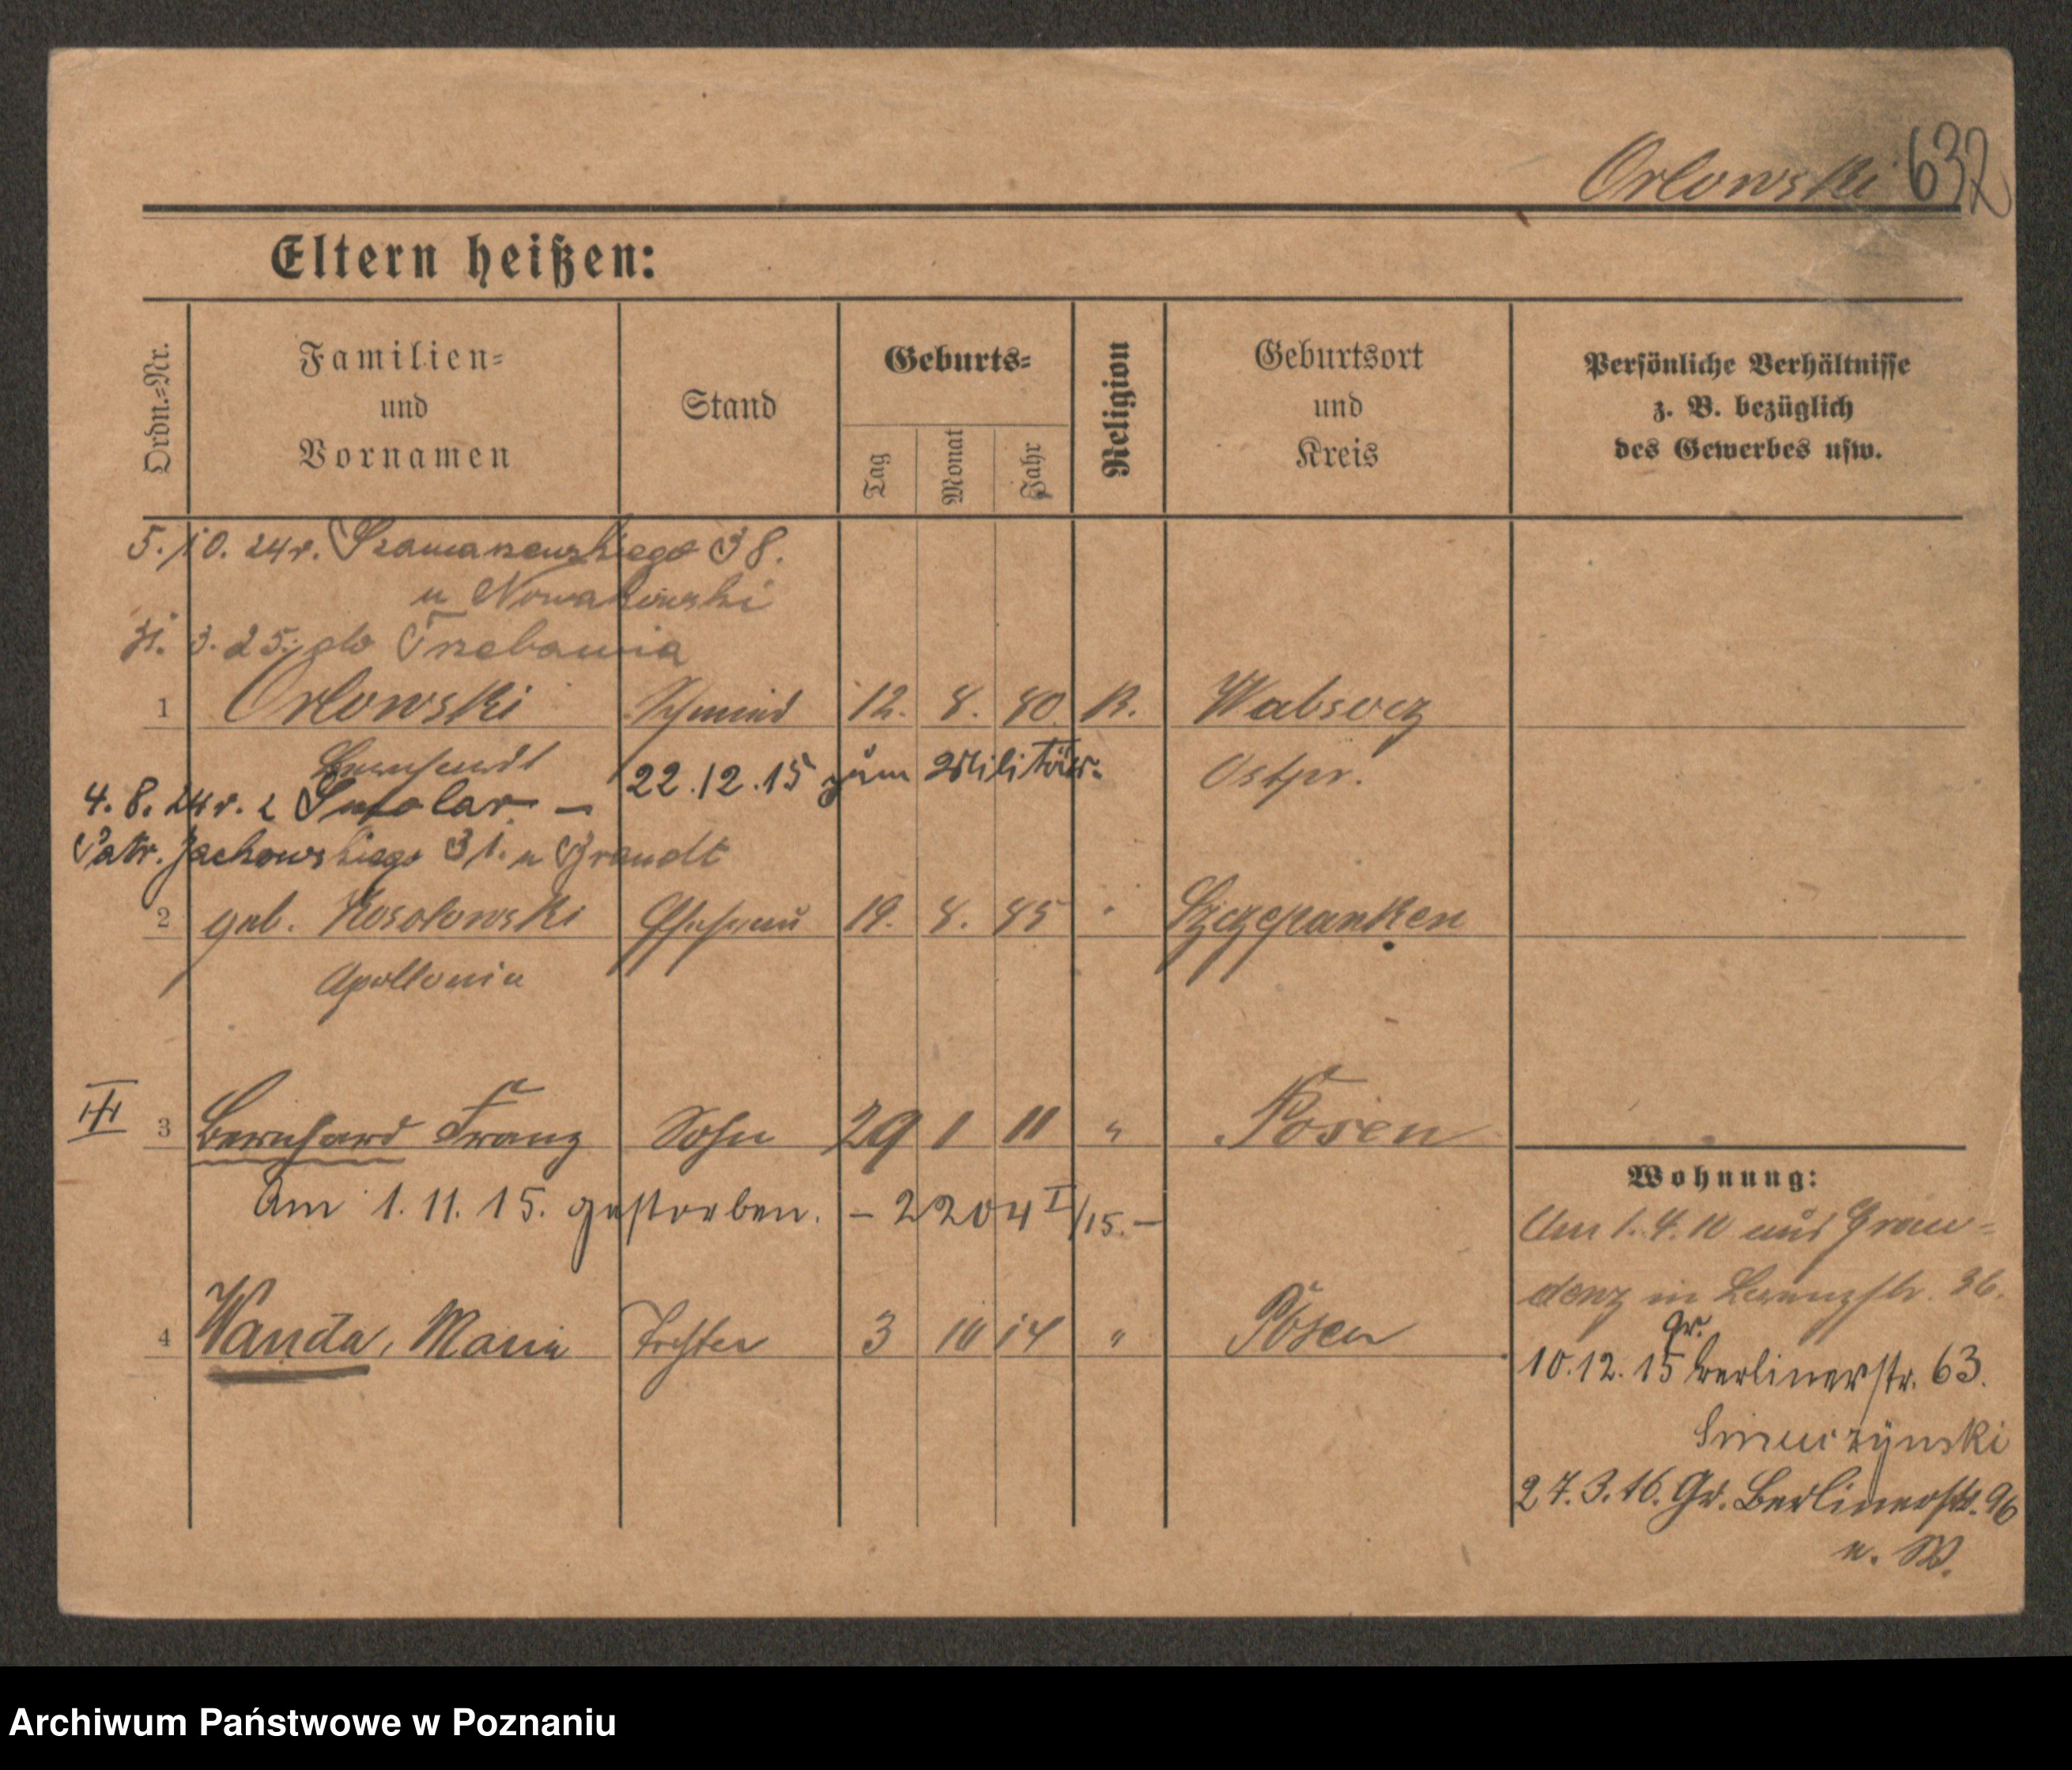 Orlowski 632
Eltern heißen:
Ordn.=Nr.
Familien=
und
Vornamen
Stand
Geburts=
Tag
Monat
Jahr
Religion
Geburtsort
und
Kreis
Persönliche Verhältnisse
z. B. bezüglich
des Gewerbes usw.
5./10. 24 r. Szamarzewskiego 38.
u Nowakowski
31. 3. 25. do Trzebawia
1 Orlowski Schmied 12. 8. 80. K. Wabsocz
22.12.15 zum Militär. Ostpr.
4. 8. 24 r. z Smolar. —
Patr. Jackowskiego 31. u Brandt
2 geb. Kosolowski Ehefrau 19. 8. 85 " Szczepanken
Apollonia
III 3 Bernhard Franz Sohn 29 1 11 " Posen
Am 1. 11. 15. gestorben. – 2204 I/15. –
4 Wanda, Maria Tochter 3 10 14 " Posen
Wohnung:
Am 1. 4. 10 aus Grau=
denz in 36.
10.12.15 Gr. Berlinerstr. 63.
27.3.16. Gr. Berlinerstr. 96
n. W.
Archiwum Państwowe w Poznaniu